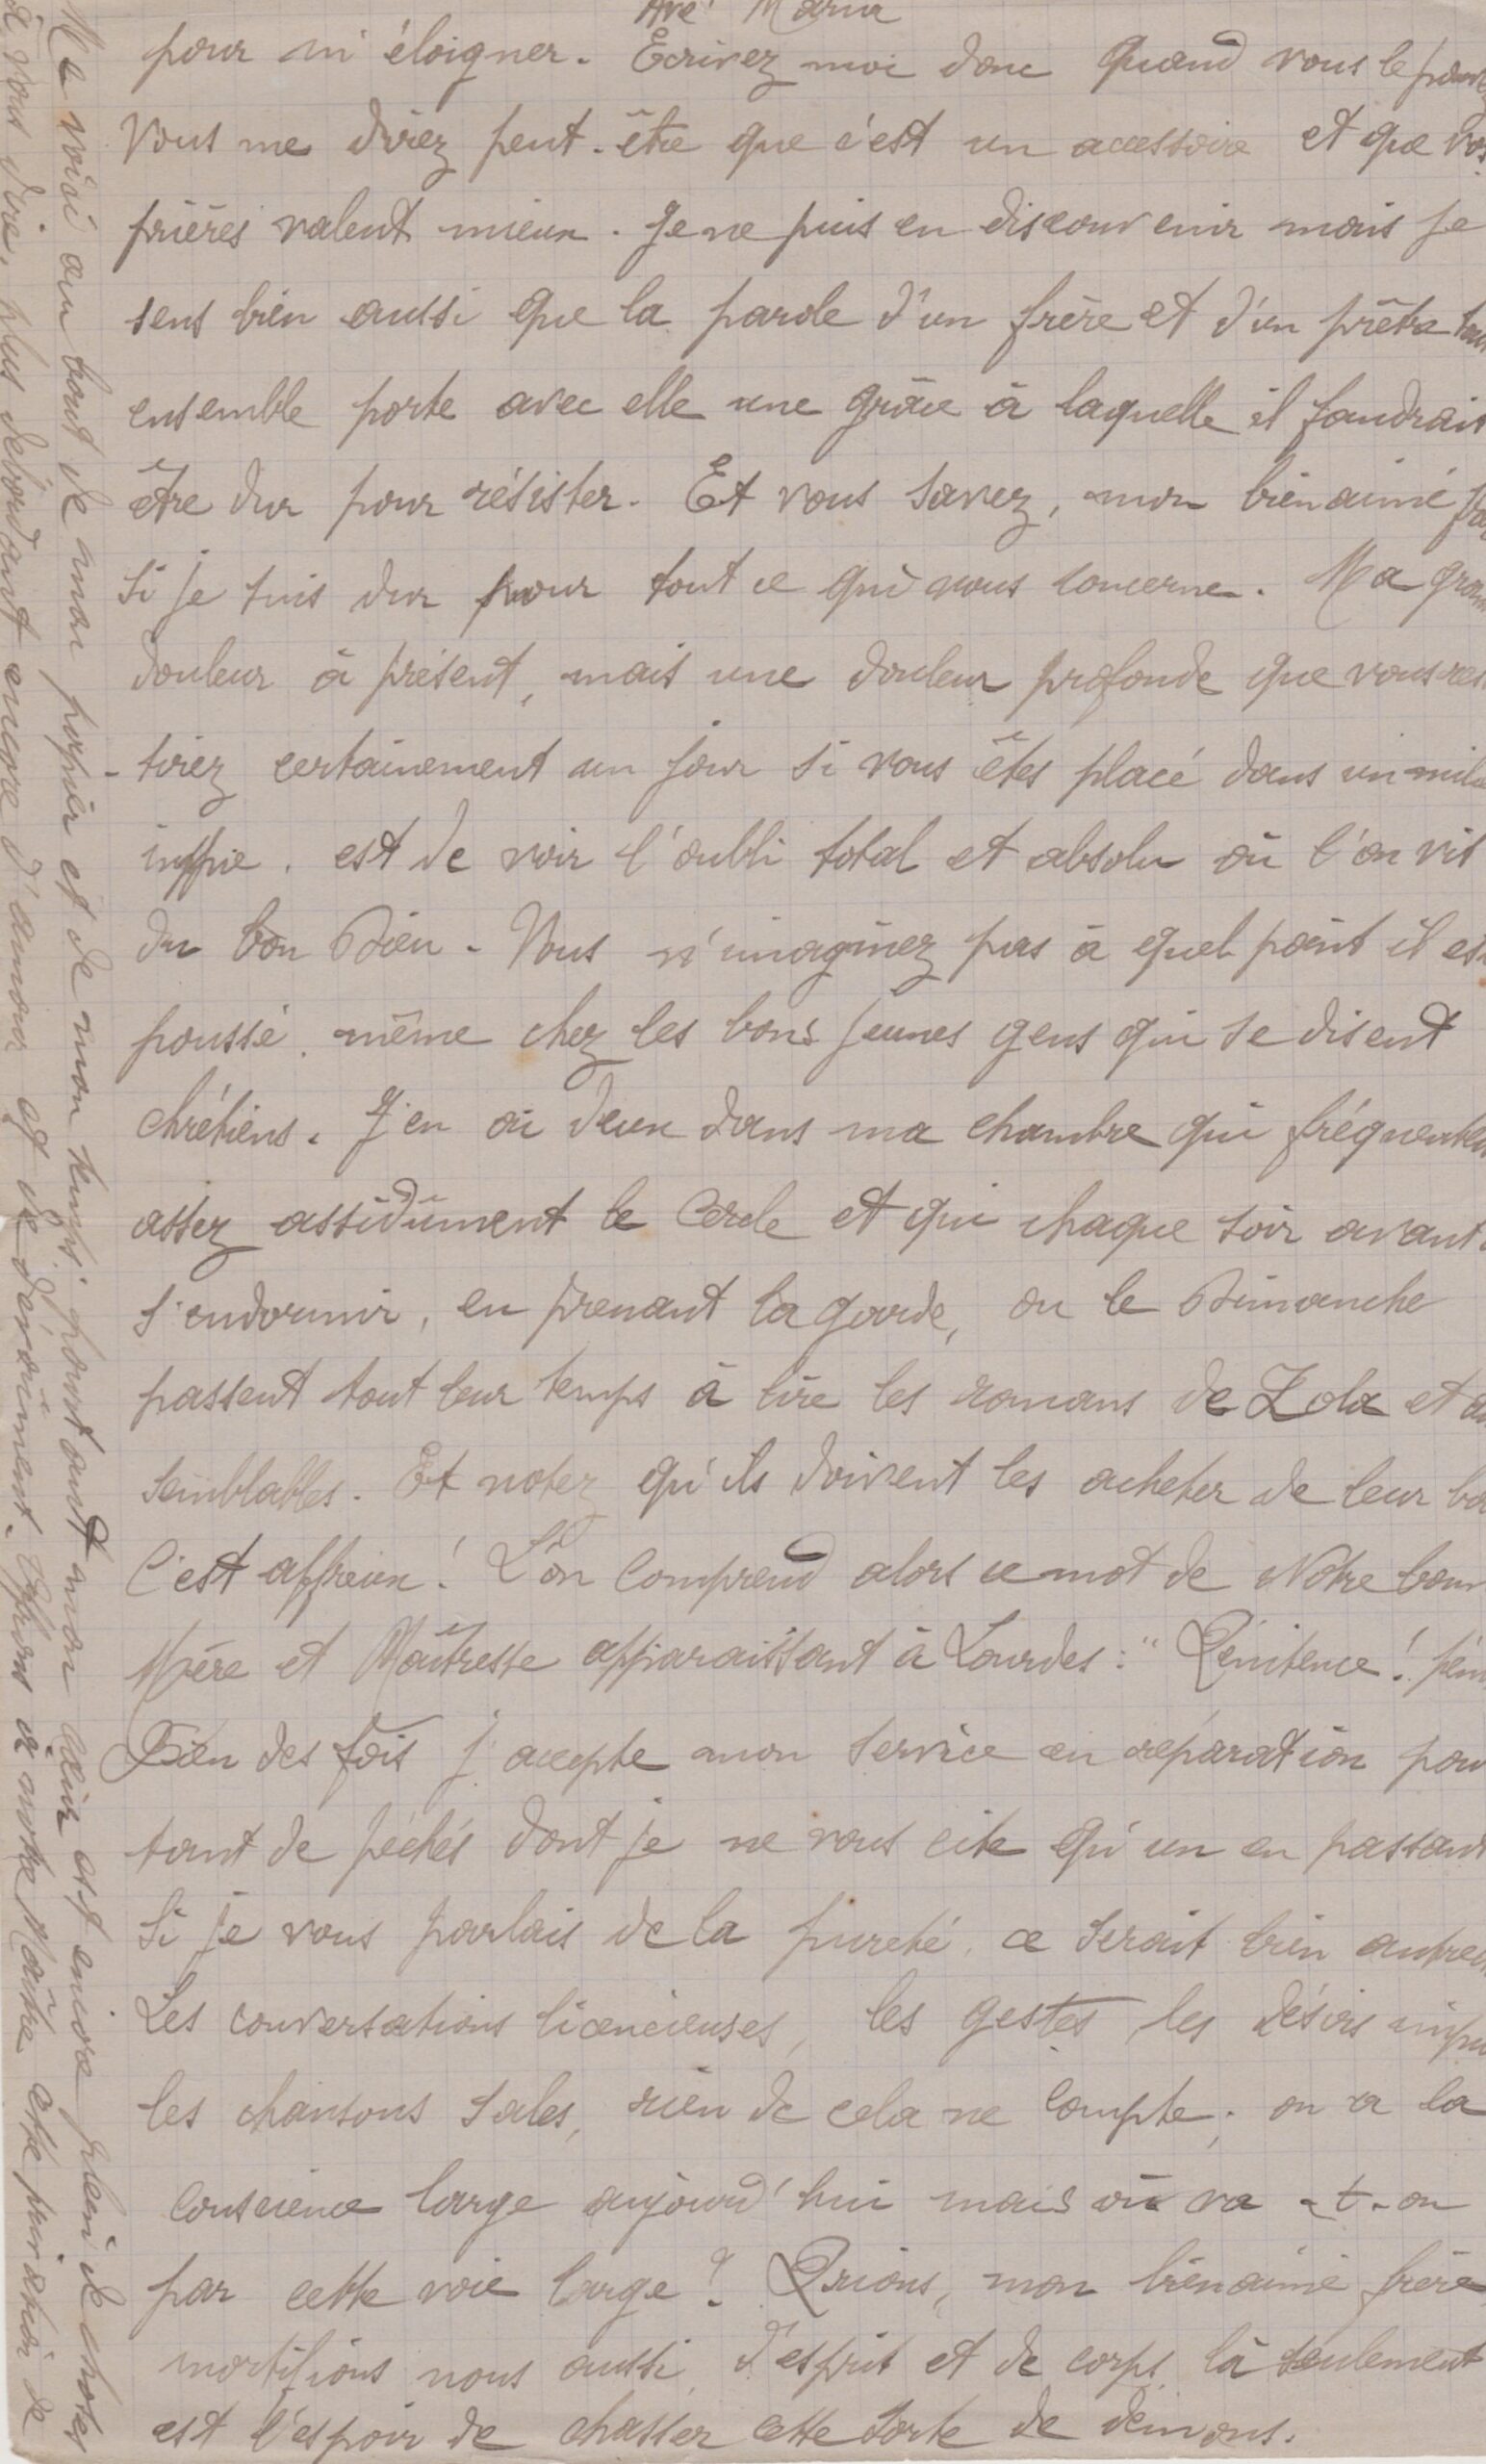 Ave Maria
pour m'éloigner. Ecrivez moi donc quand vous le pouvez
Vous me direz peut-être que c'est un accessoire et que vos
prières valent mieux. Je ne puis en disconvenir mais je
sens bien aussi que la parole d'un frère et d'un prêtre tout
ensemble porte avec elle une grâce à laquelle il faudrait
être dur pour résister. Et vous savez, mon bien aimé
si je suis dur pour tout ce qui vous concerne. Ma gran
douleur à présent, mais une douleur profonde que vous res
-tirez certainement un jour si vous êtes placé dans un mili
impie. est de voir l'oubli total et absolu où l'on vit
du bon Dieu - Vous n'imaginez pas à quel point il est
poussé, même chez les bons jeunes gens qui se disent
chrétiens. J'en ai deux dans ma chambre qui fréquentent
assez assidûment le Cercle et qui chaque soir avant
s'endormir, en prenant la garde, ou le Dimanche
passent tout leur temps à lire les romans de Zola et au
semblables. Et notez qu'ils doivent les acheter de leur bo
C'est affreux! L'on comprend alors ce mot de Notre bonn
Mère et Maîtresse apparaissant à Lourdes: "Pénitence! péni
Bien des fois j'accepte mon service en réparation pour
tant de péchés dont je ne vous cite qu'un en passant
Si je vous parlais de la pureté, ce serait bien autre
Les conversations licencieuses, les gestes, les désirs impu
les chansons sales, rien de cela ne compte; on a la
conscience large aujourd'hui mais où va-t-on
par cette voie large? Prions, mon bien aimé frère
mortifions nous aussi, d'esprit et de corps, là seulement
est l'espoir de chasser cette sorte de démons.
Me voici au bout de mon papier et de mon temps: pourtant mon cœur est encore plein de choses
à vous dire, plus débordant encore d'amour et de dévoûment. Offrons à notre Maître cette privation de